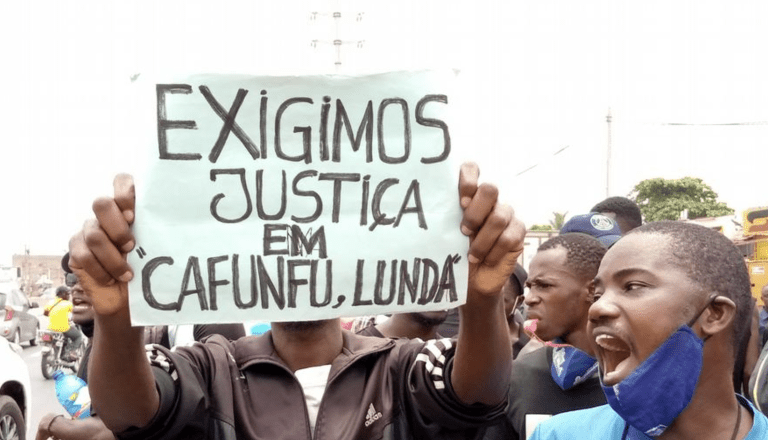 EXiGiMOS
JUSTiÇA
EM
"CAFUNFU, LUNDA"
adidas